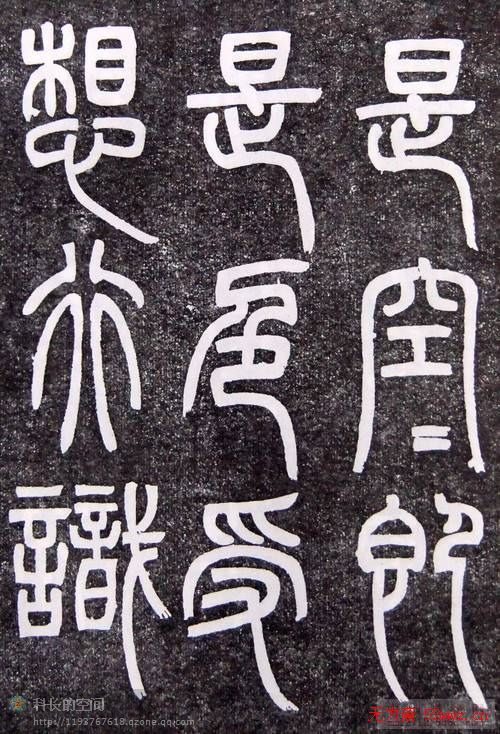 是空〻即
是色受
想行識
科长的空间
http://1193767618.qzone.qq.com